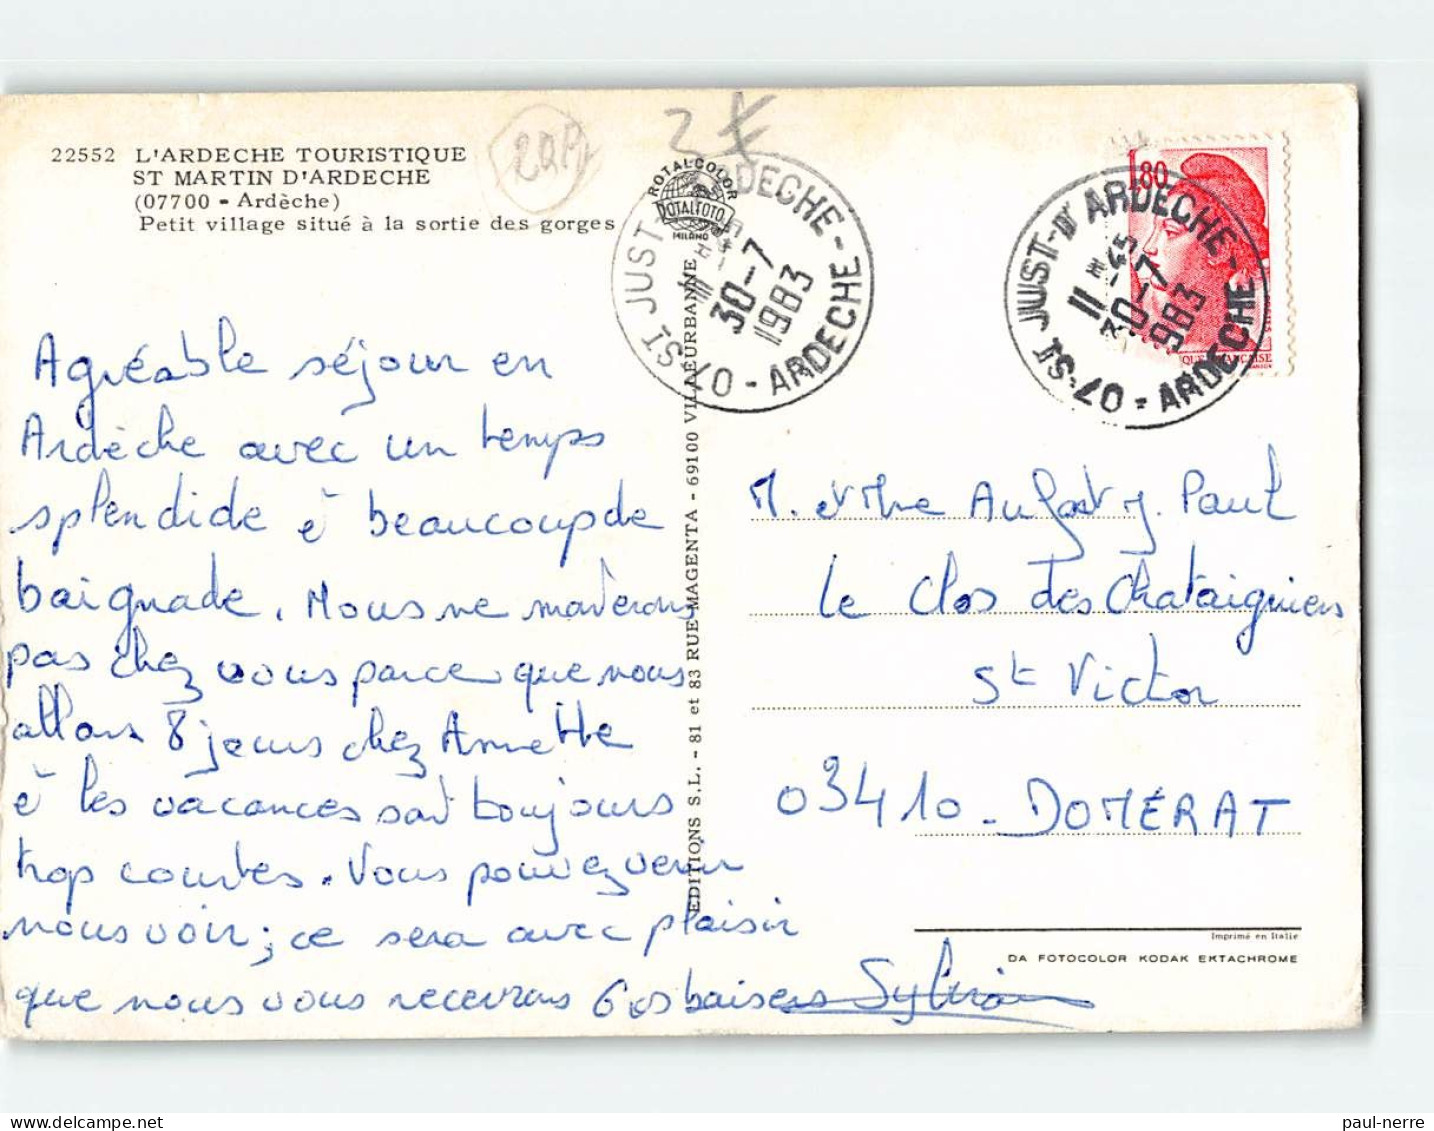 22552 L'ARDECHE TOURISTIQUE
ST MARTIN D'ARDECHE
(07700 - Ardèche)
Petit village situé à la sortie des gorges
2 €
ROTALCOLOR
ROTALFOTO
MILANO
ST JUST-D'ARDECHE - 07 - ARDECHE
30-7
1983
1,80
ST JUST-D'ARDECHE - 07 - ARDECHE
11 H 45
30-7
1983
Agréable séjour en
Ardèche avec un temps
splendide è beaucoup de
baignade. Nous ne
pas chez vous parce que nous
allons 8 jours chez Annette
è les vacances sont toujours
trop courtes. Vous pouvez venir
nous voir; ce sera avec plaisir
que nous vous recevrons Gos baisers Sylvia
EDITIONS S.L. - 81 et 83 RUE MAGENTA - 69100 VILLEURBANNE
M. et Mme Paul
Le Clos des Chataigniers
St Victor
03410 - DOMÉRAT
Imprimé en Italie
DA FOTOCOLOR KODAK EKTACHROME
delcampe.net
paul-nerre